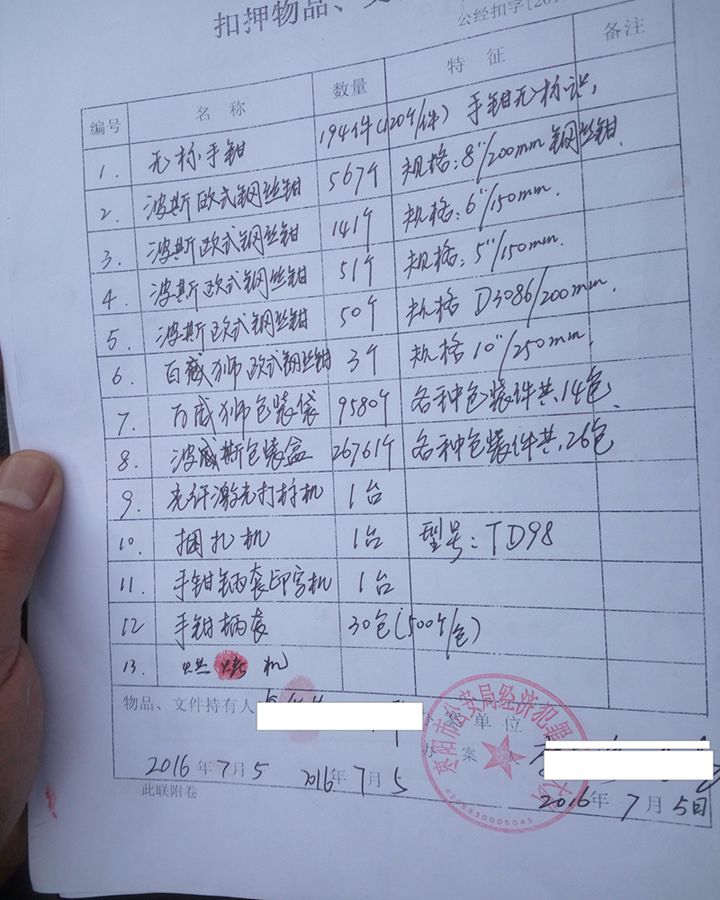 扣押物品、
公经扣字[20
编号 名称 数量 特征 备注
1. 无标手钳 194件(120个/件) 手钳无标识,
2. 波斯欧式钢丝钳 567个 规格:8"/200mm 钢丝钳.
3. 波斯欧式钢丝钳 141个 规格:6"/150mm.
4. 波斯欧式钢丝钳 51个 规格:5"/150mm.
5. 波斯欧式钢丝钳 50个 规格 D3086/200mm.
6. 百威狮欧式钢丝钳 3个 规格 10"/250mm.
7. 百威狮包装袋 9580个 各种包装件共.14包.
8. 波威斯包装盒 26761个 各种包装件共.26包
9. 光纤激光打标机 1台
10. 捆扎机 1台 型号:TD98
11. 手钳钳柄套印字机 1台
12 手钳柄套 30包(500个/包)
13. 烘烤机
物品、文件持有人
办案单位
办案
枣阳市公安局经济犯罪
4206830005045
2016年7月5 2016年7月5 2016年7月5日
此联附卷